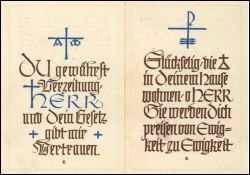 DU gewährest
Verzeihung
HERR
und dein Gesetz
gibt mir
Vertrauen.
Glückselig, die
in deinem Hause
wohnen, o HERR
Sie werden dich
preisen von Ewig=
keit zu Ewigkeit